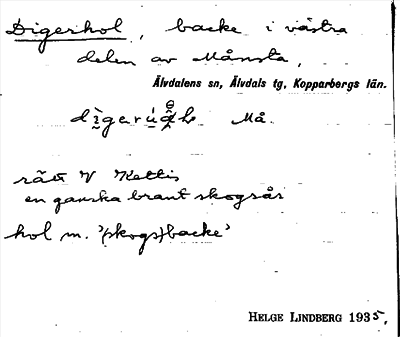 Digerhol, backe i västra
delen av Månsta,
Älvdalens sn, Älvdals tg, Kopparbergs län.
Må.
rätt V Kettis
en ganska brant skogsås
hol m. '(skogs)backe'
HELGE LINDBERG 1935,